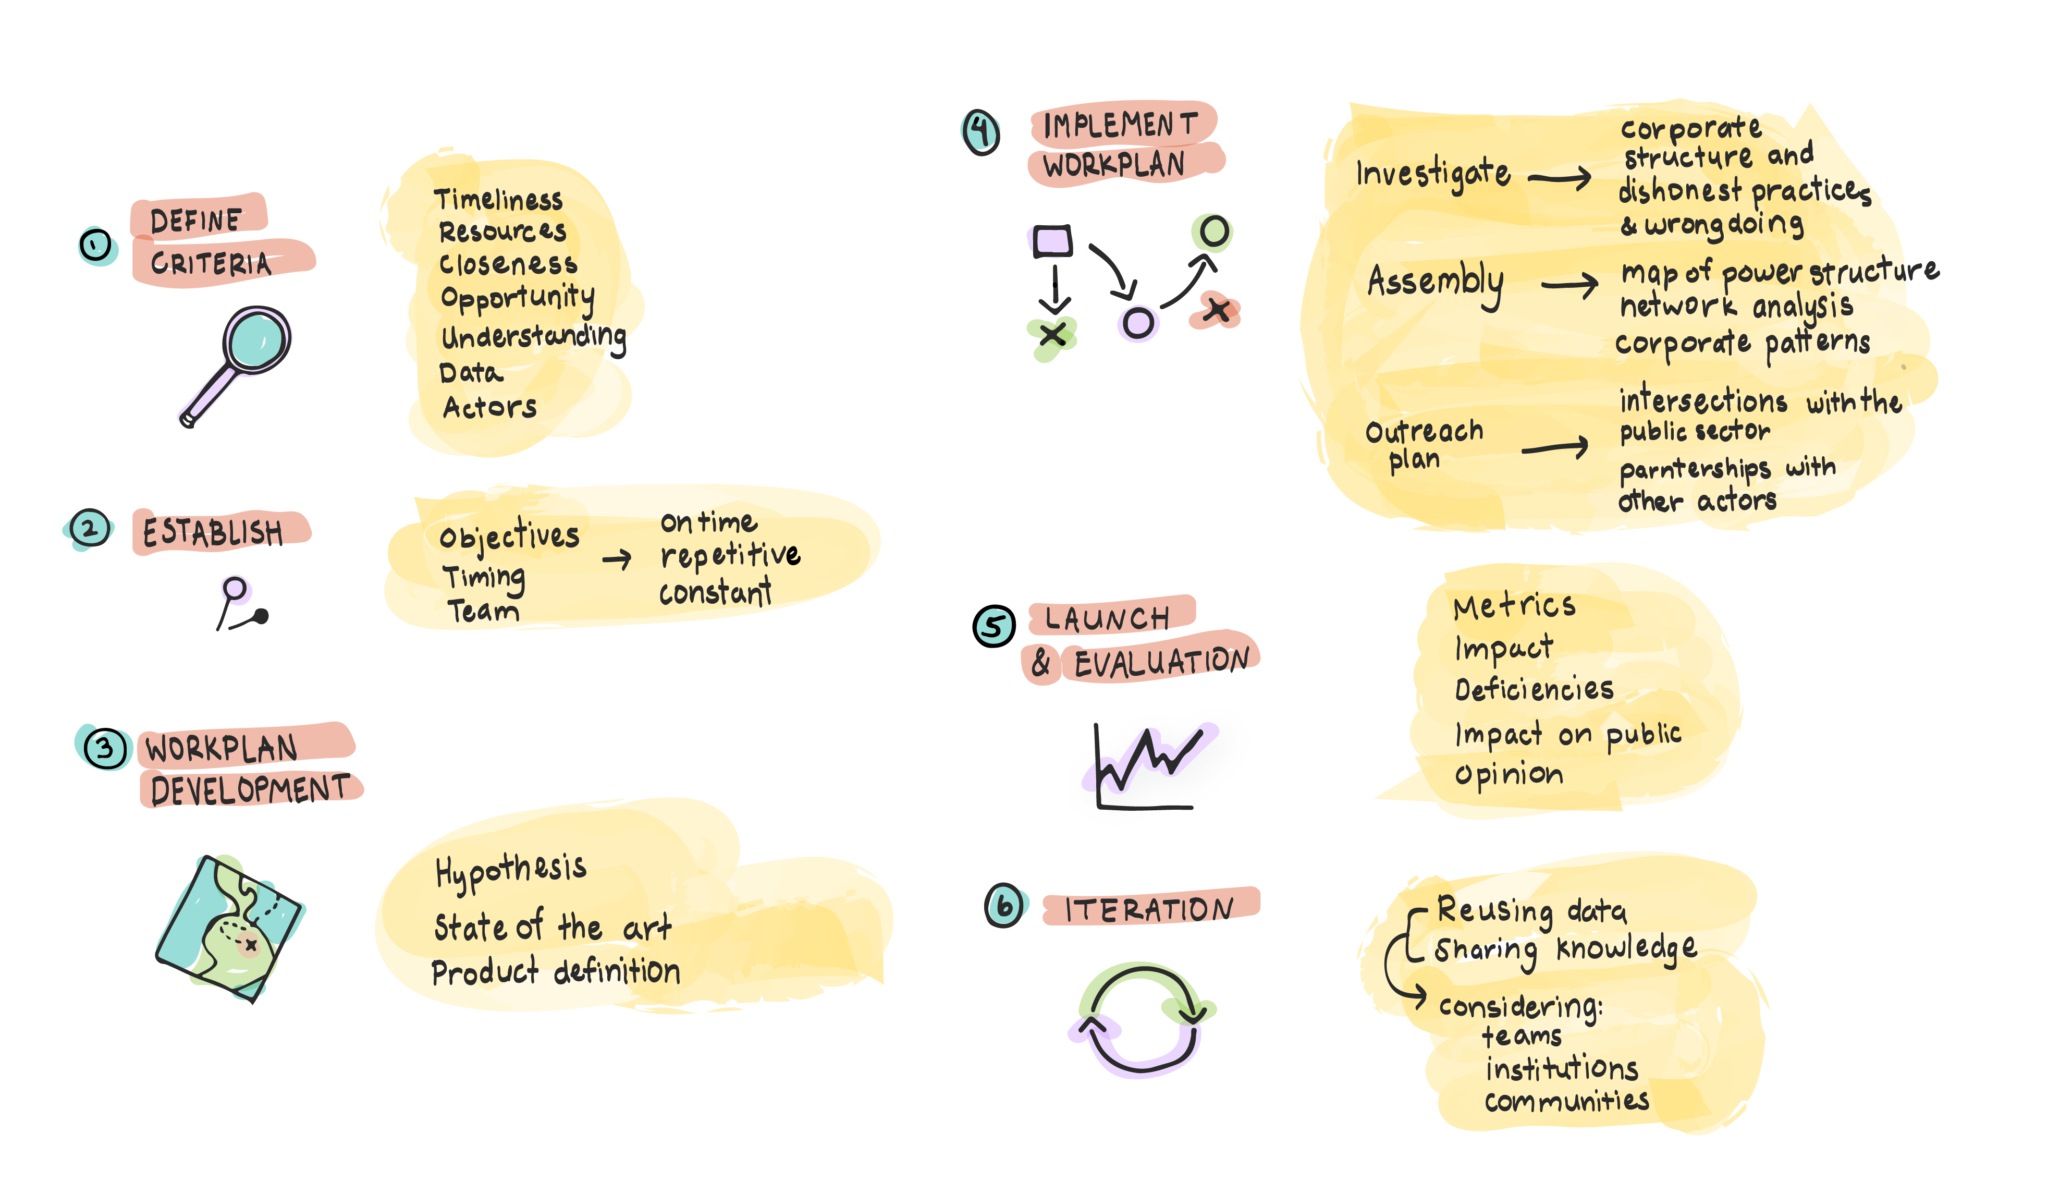 1
DEFINE
CRITERIA
Timeliness
Resources
Closeness
Opportunity
Understanding
Data
Actors
2
ESTABLISH
Objectives
Timing
Team
on time
repetitive
constant
3
WORKPLAN
DEVELOPMENT
Hypothesis
State of the art
Product definition
4
IMPLEMENT
WORKPLAN
Investigate
corporate
structure and
dishonest practices
& wrongdoing
Assembly
map of power structure
network analysis
corporate patterns
Outreach
plan
intersections with the
public sector
parnterships with
other actors
5
LAUNCH
& EVALUATION
Metrics
Impact
Deficiencies
Impact on public
opinion
6
ITERATION
Reusing data
Sharing knowledge
considering:
teams
institutions
communities